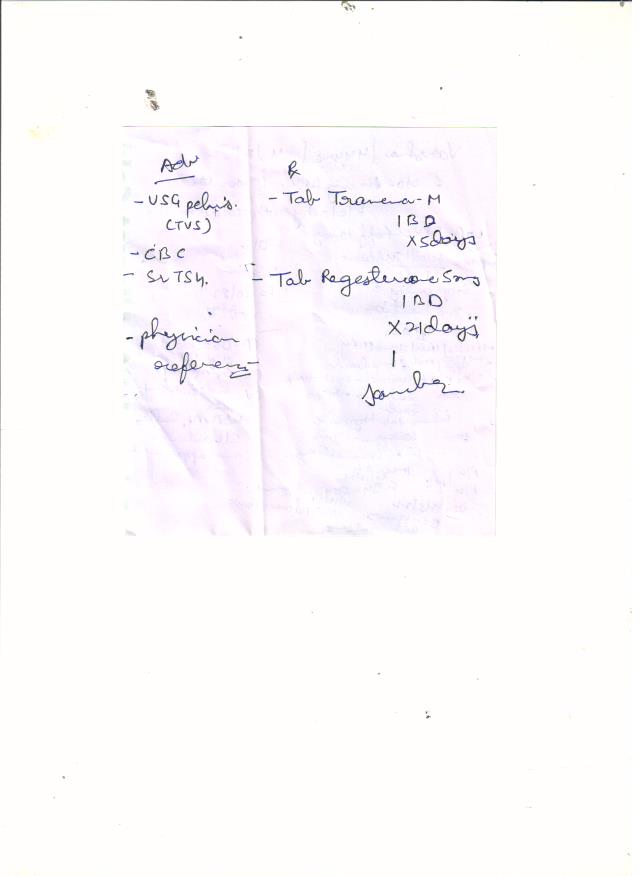 Adv
- USG pelvis.
(TVS)
- CBC
- Sr TSH.
- physician
reference
Rx
- Tab Tranexa-M
1 BD
x 5days
- Tab Regesterone 5mg
1 BD
x 21days